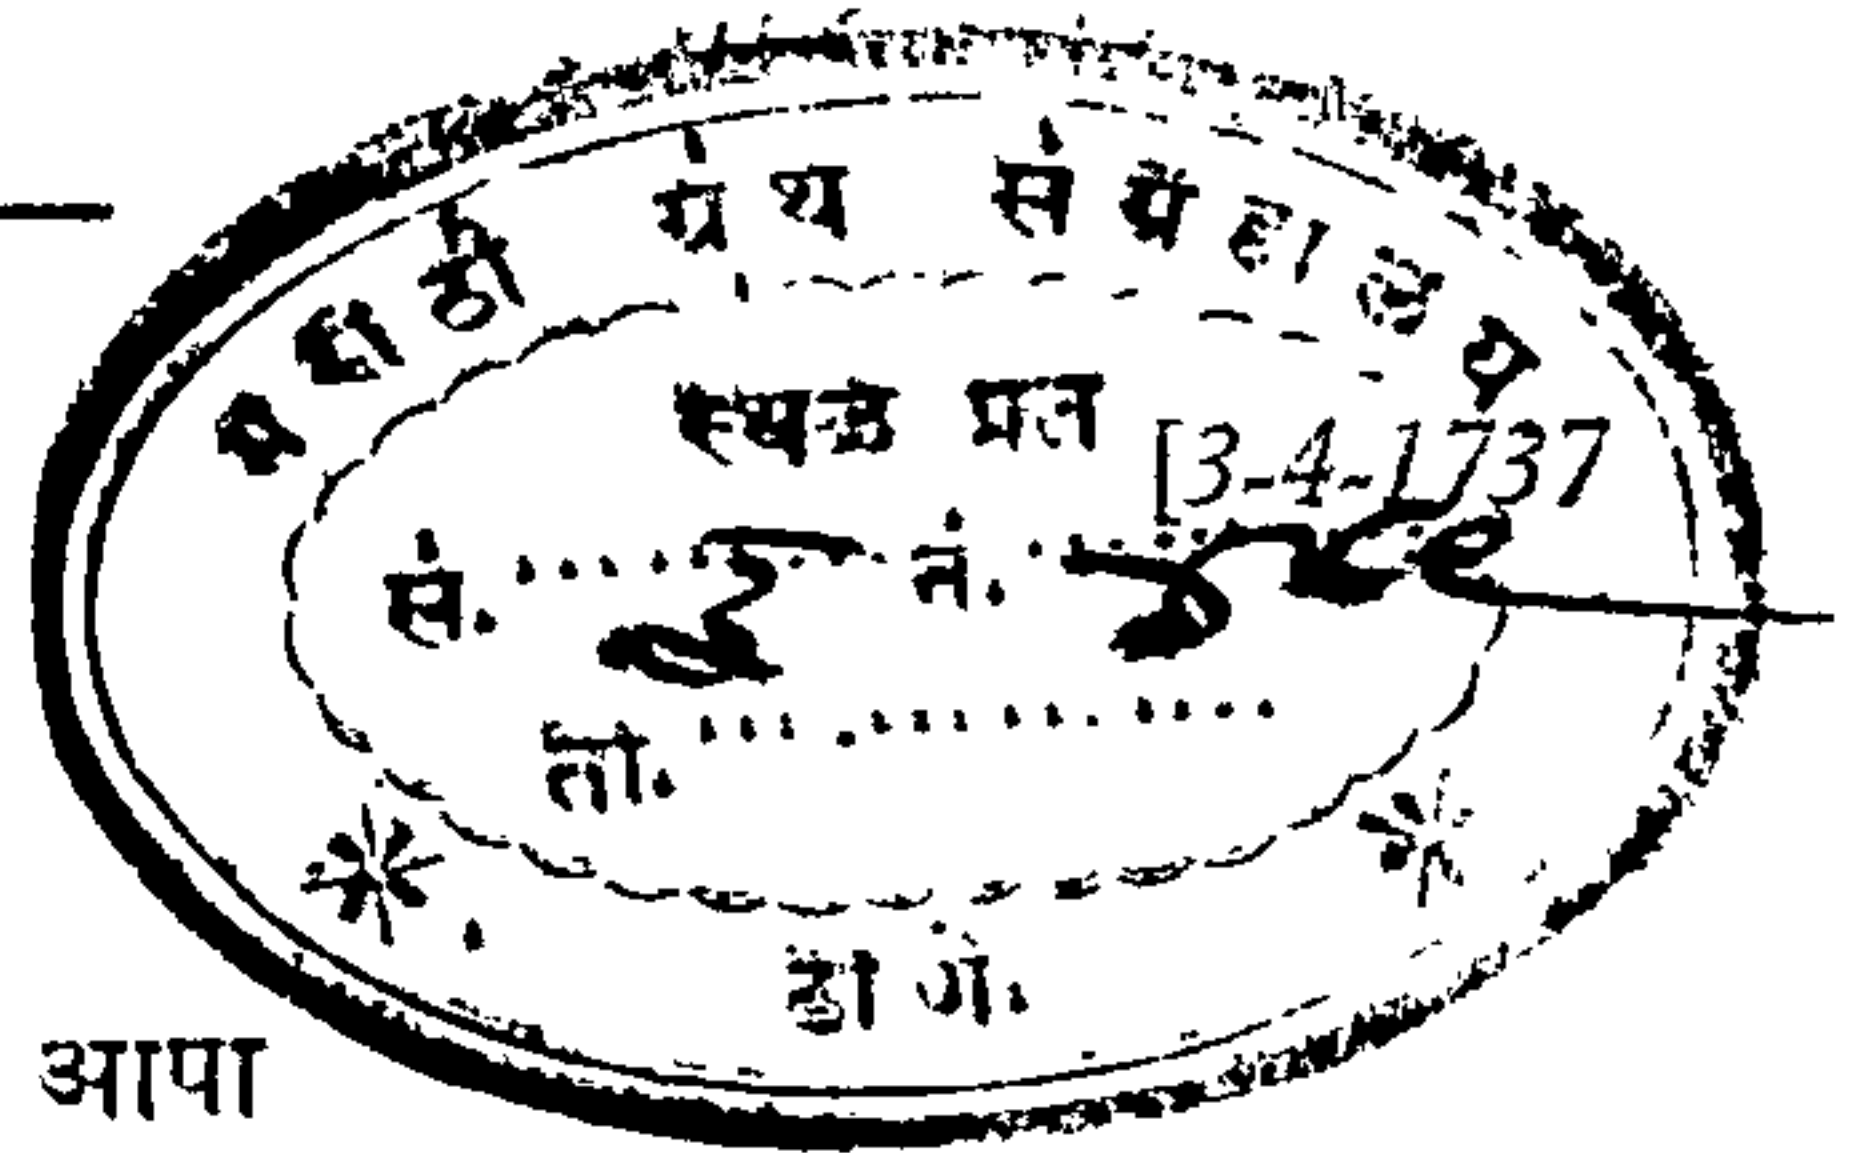 मराठी ग्रंथ संग्रहालय
स्थळ प्रत
[3-4-1737
सं. नं.
ता.
ठाणें.
आपा